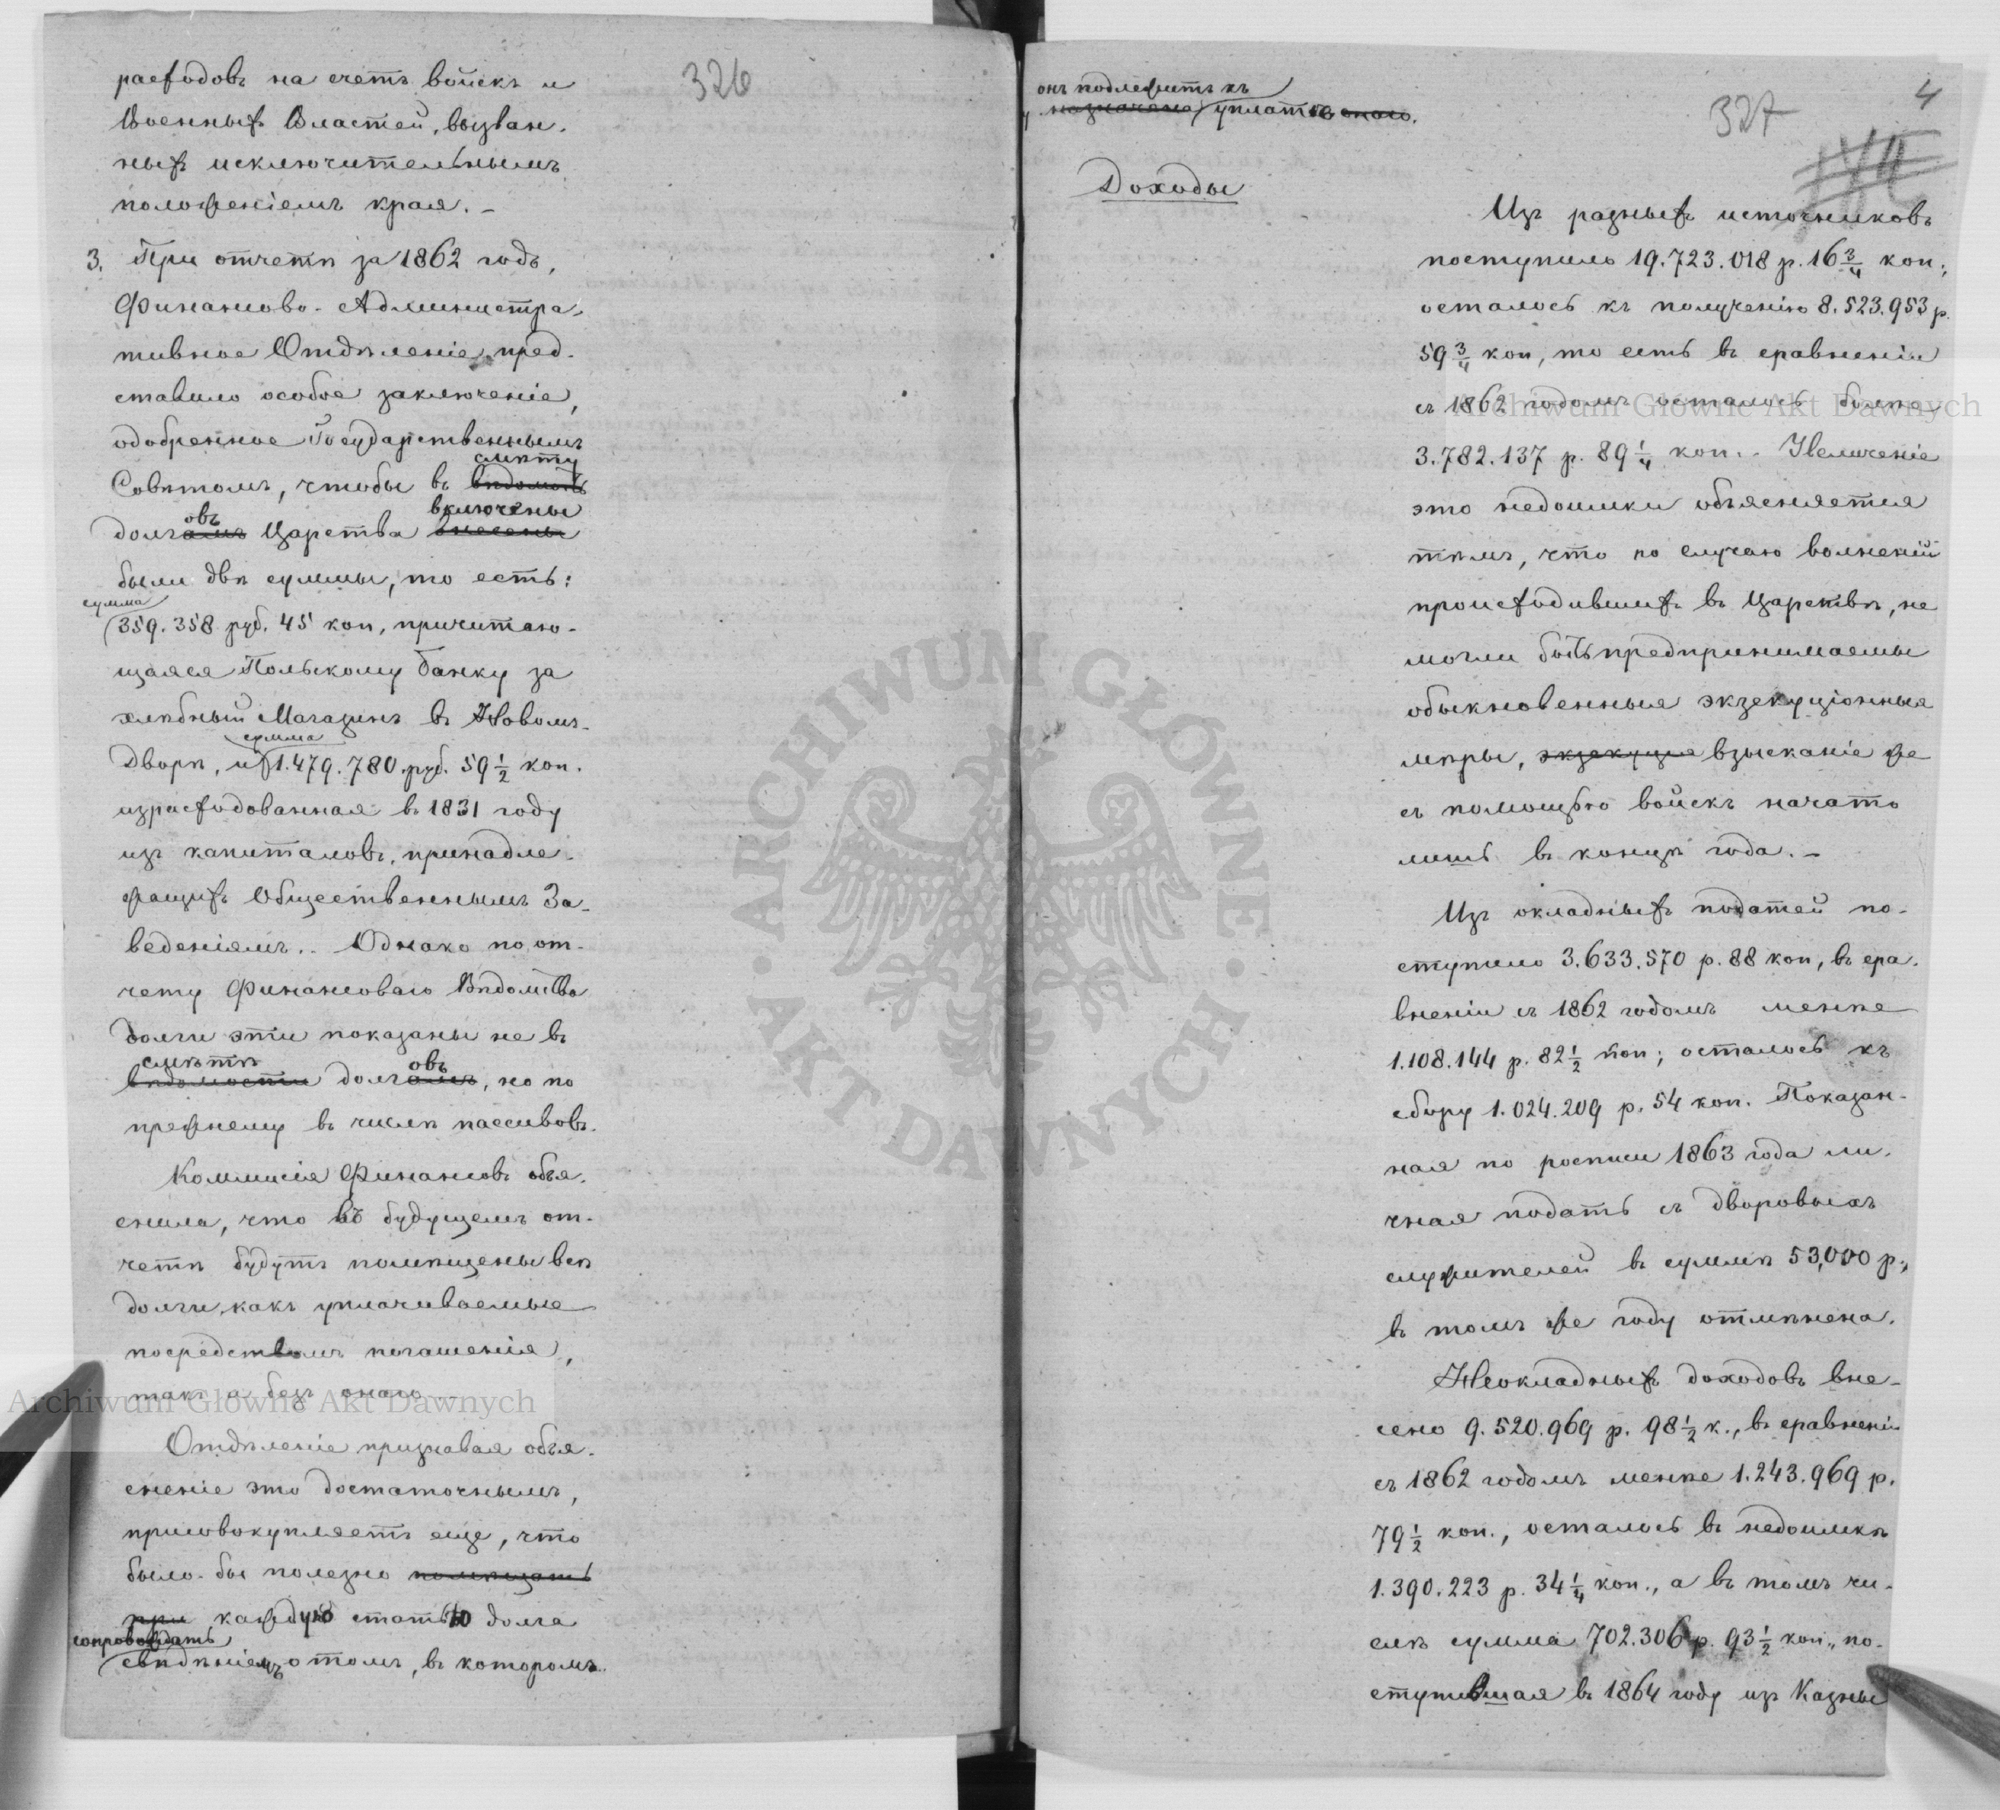 326
расходовъ на счетъ войскъ и
Военныхъ Властей, вызван-
ныхъ исключительнымъ
положеніемъ края. –
3. При отчетѣ за 1862 годъ,
Финансово-Администра-
тивное Отдѣленіе пред-
ставило особое заключеніе,
одобренное Государственнымъ
смѣту
Совѣтомъ, чтобы въ вѣдомость
овъ включены
долгамъ Царства внесены
были двѣ суммы, то есть:
сумма
359.358 руб. 45 коп, причитаю-
щаяся Польскому Банку за
хлѣбный Магазинъ въ Новомъ-
сумма
Дворѣ, и 1.479.780 руб. 59 1/2 коп.
израсходованная въ 1831 году
изъ капиталовъ, принадле-
жащихъ Общественнымъ За-
веденіямъ. Однако по от-
чету Финансоваго Вѣдомства
долги эти показаны не въ
смѣтѣ овъ
вѣдомости долгамъ, но по
прежнему въ числѣ пассивовъ.
Коммисія Финансовъ объя-
снила, что въ будущемъ от-
четѣ будутъ помѣщены всѣ
долги, какъ уплачиваемые
посредствомъ погашенія,
такъ и безъ онаго. –
Отдѣленіе признавая объя-
сненіе это достаточнымъ,
присовокупляетъ еще, что
было-бы полезно помѣщать
при каждую статью долга
сопровождать
свѣдѣніемъ о томъ, въ которомъ
онъ подлежитъ къ
назначена уплатѣ онаго.
327
4
Доходы
Изъ разныхъ источниковъ
поступило 19.723.018 р. 16 3/4 коп;
осталось къ полученію 8.523.953 р.
59 3/4 коп, то есть въ сравненіи
съ 1862 годомъ осталось болѣе
3.782.137 р. 89 1/4 коп. Увеличеніе
это недоимки объясняется
тѣмъ, что по случаю волненій
происходившихъ въ Царствѣ, не
могли быть предпринимаемы
обыкновенныя экзекуціонныя
мѣры, экзекуція взысканіе же
съ помощью войскъ начато
лишь въ концѣ года. –
Изъ окладныхъ податей по-
ступило 3.633.570 р. 88 коп, въ сра-
вненіи съ 1862 годомъ менѣе
1.108.144 р. 82 1/2 коп; осталось къ
сбору 1.024.209 р. 54 коп. Показан-
ная по росписи 1863 года ли-
чная подать съ дворовыхъ
служителей въ суммѣ 53,000 р.,
въ томъ же году отмѣнена.
Неокладныхъ доходовъ вне-
сено 9.520.969 р. 98 1/2 к., въ сравненіи
съ 1862 годомъ менѣе 1.243.969 р.
79 1/2 коп., осталось въ недоимкѣ
1.390.223 р. 34 1/4 коп., а въ томъ чи-
слѣ сумма 702.306 р. 93 1/2 коп., по-
ступившая въ 1864 году изъ Казны
ARCHIWUM GŁÓWNE
AKT DAWNYCH
Archiwum Główne Akt Dawnych
Archiwum Główne Akt Dawnych